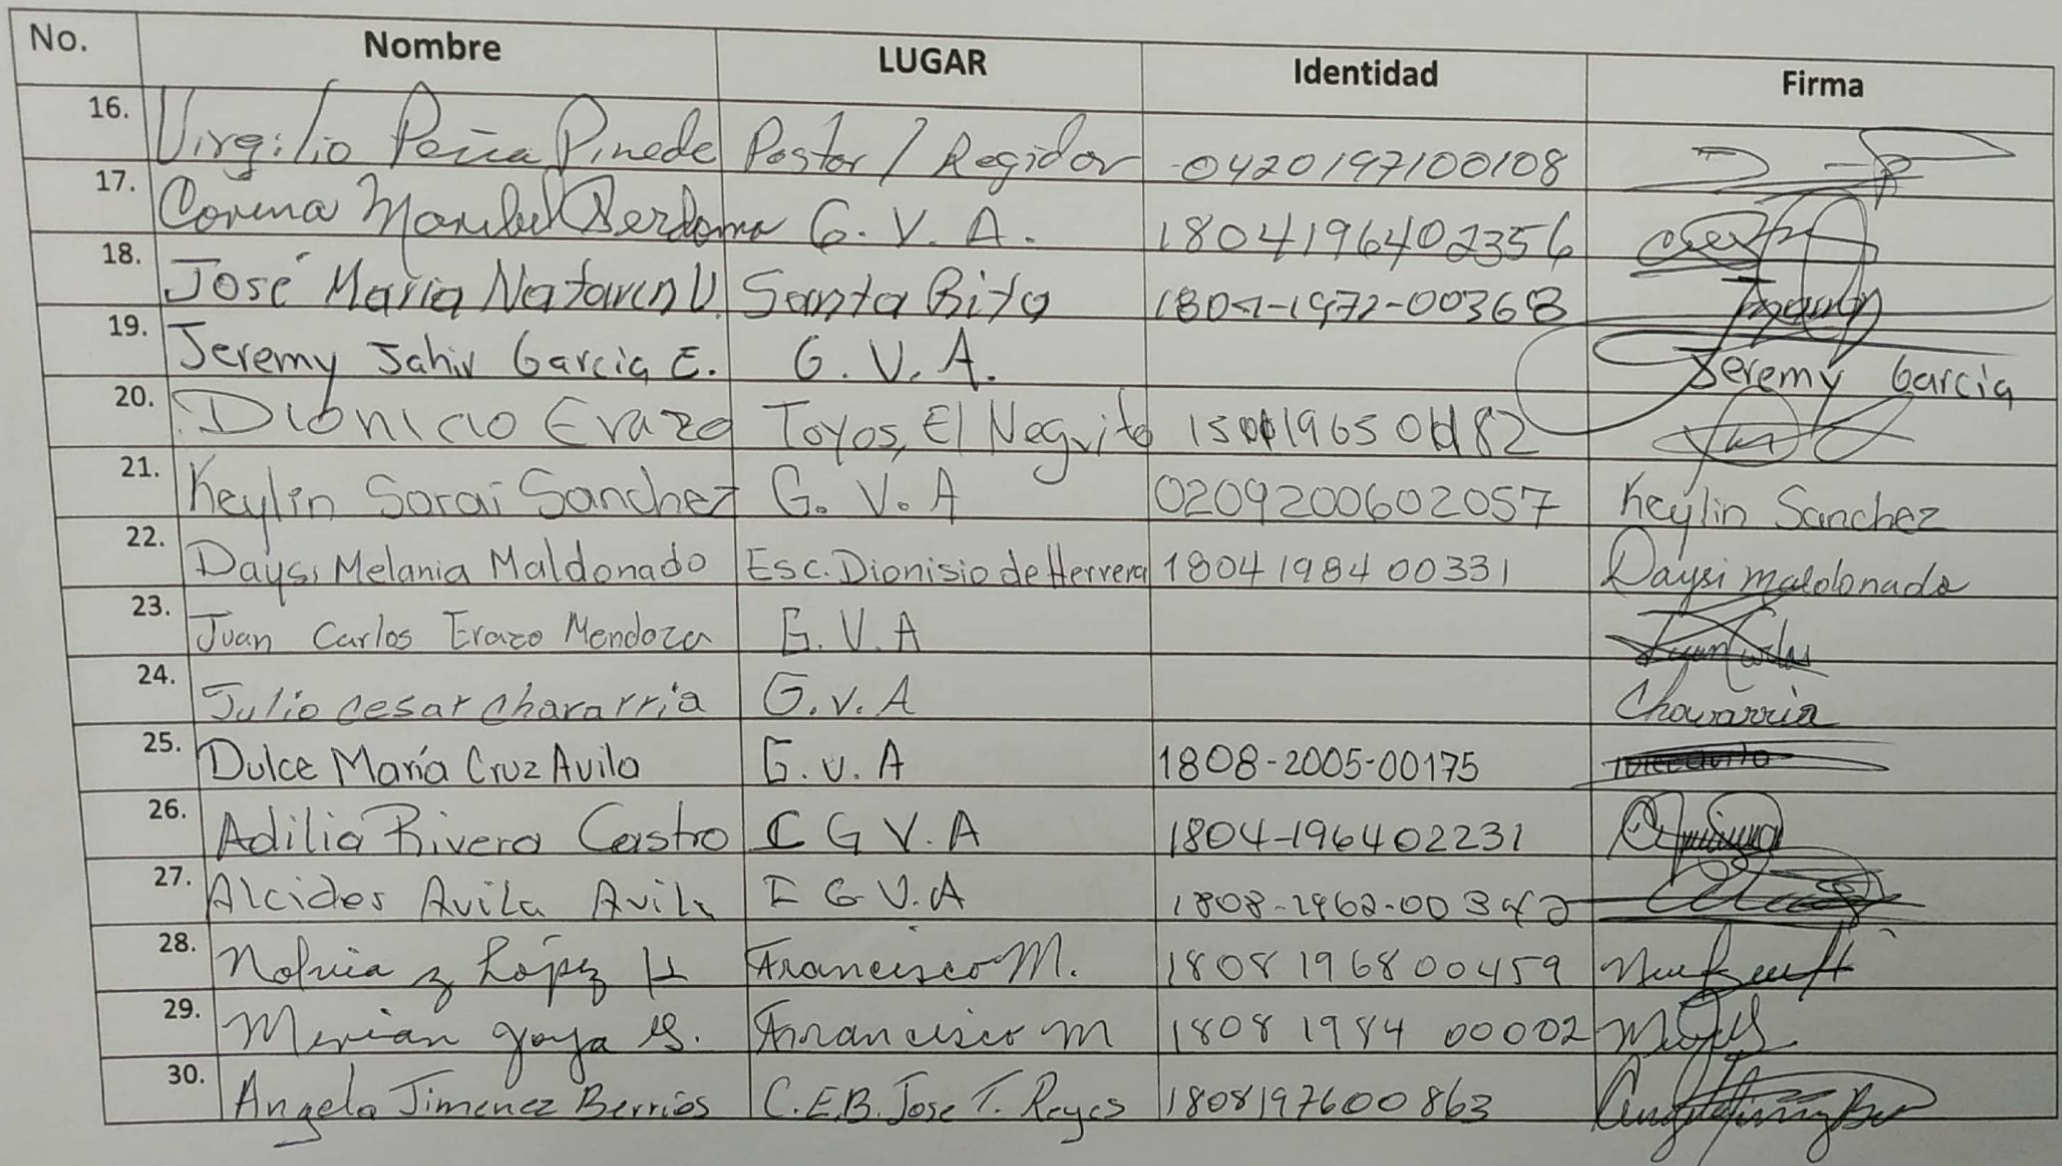 No. Nombre LUGAR Identidad Firma
16. Virgilio Peña Pineda Pastor / Regidor 0420197100108
17. Corina Maribel Perdomo G. V. A. 1804196402356
18. José María Natarén U. Santa Rita 1804-1972-00368
19. Jeremy Jahir Garcia E. G. V. A. Jeremy Garcia
20. Dionicio Erazo Toyos, El Negrito
21. Keylin Sarai Sanchez G. V. A 0209200602057 Keylin Sanchez
22. Daysi Melania Maldonado Esc. Dionisio de Herrera 1804 1984 00331 Daysi Maldonado
23. Juan Carlos Erazo Mendoza G. V. A Juan Carlos
24. Julio Cesar Chavarria G. V. A Chavarria
25. Dulce María Cruz Avila G. V. A 1808-2005-00175
26. Adilia Rivera Castro I G V. A 1804-196402231
27. Alcides Avila Avila I G V. A 1808-1962-00342
28. López H Francisco M. 1808 1968 00459
29. Merian Joya S. Francisco M 1808 1984 00002
30. Angela Jimenez Berrios C.E.B. Jose T. Reyes 1808197600863